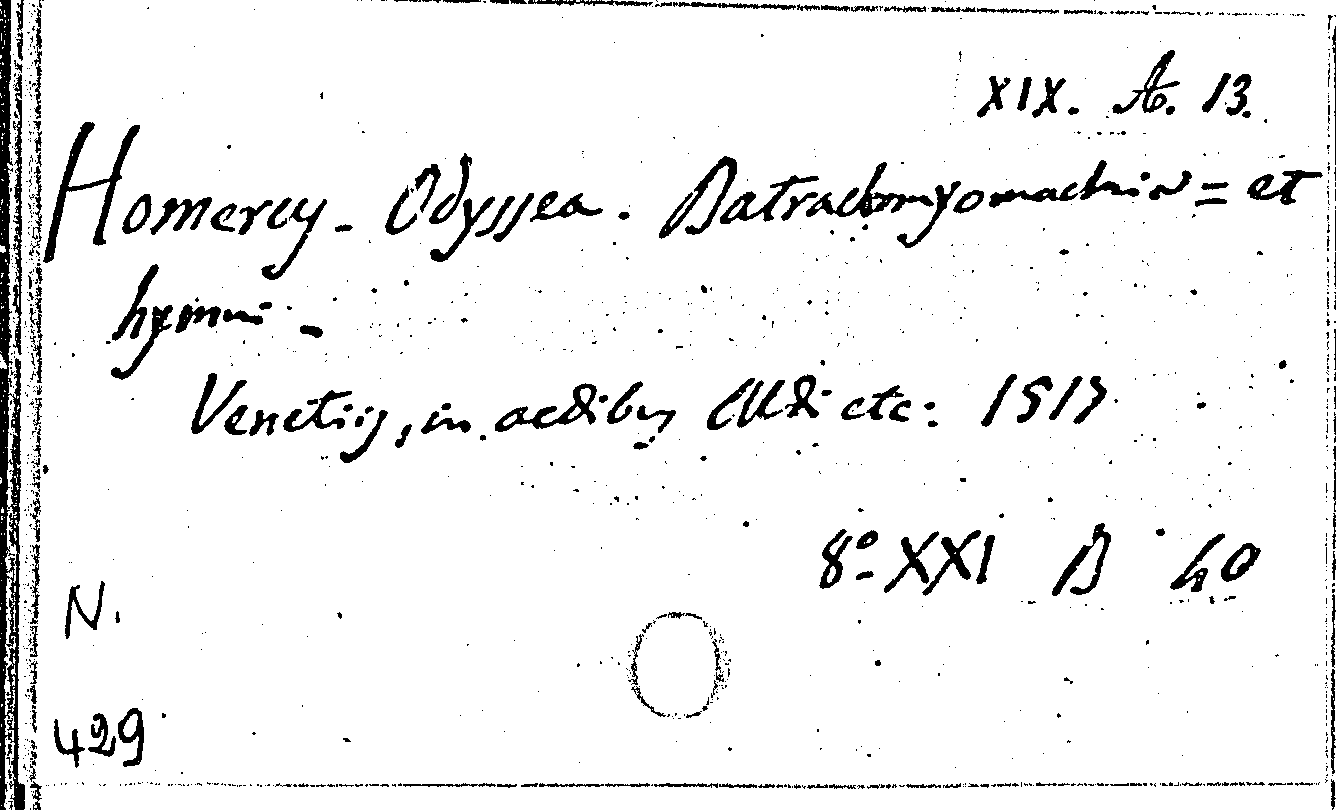 XIX. A. 13.
Homerus - Odyssea. Batrachomyomachia = et
hymni -
Venetiis, in aedibus Aldi etc: 1517
8º XXI B 40
N.
429